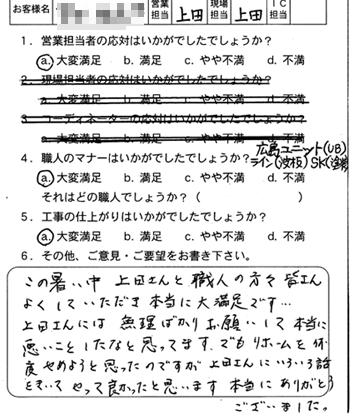 お客様名 様 営業担当 上田 現場担当 上田 IC担当
1．営業担当者の応対はいかがでしたでしょうか？
a. 大変満足 b. 満足 c. やや不満 d. 不満
2．現場担当者の応対はいかがでしたでしょうか？
a. 大変満足 b. 満足 c. やや不満 d. 不満
3．コーディネーターの応対はいかがでしたでしょうか？
a. 大変満足 b. 満足 c. やや不満 d. 不満
4．職人のマナーはいかがでしたでしょうか？
広島ユニット(UB)
ライン(波板) SK(塗装)
a. 大変満足 b. 満足 c. やや不満 d. 不満
それはどの職人でしょうか？（ ）
5．工事の仕上がりはいかがでしたでしょうか？
a. 大変満足 b. 満足 c. やや不満 d. 不満
6．その他、ご意見・ご要望をお書き下さい。
この暑い中 上田さんと職人の方々 皆さん
よくしていただき 本当に大満足です…
上田さんには 無理ばかりお願いして 本当に
悪いことしたなと思ってます。でも リホームを 何
度やめようと思ったのですが 上田さんに いろいろ話
をきいて やって良かったと思います 本当に ありがとう
ございました。